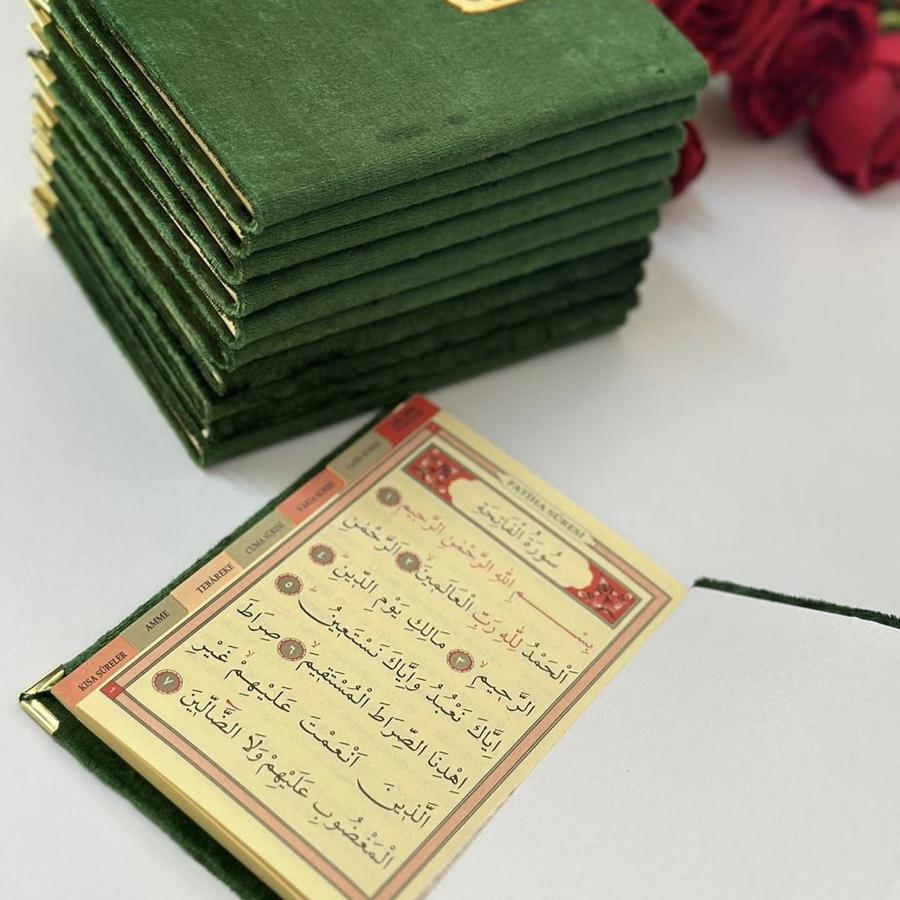 FATİHA SÛRESİ
سُورَةُ الْفَاتِحَةِ
بِسْمِ اللّٰهِ الرَّحْمٰنِ الرَّحٖيمِ ١
اَلْحَمْدُ لِلّٰهِ رَبِّ الْعَالَمٖينَ ٢ اَلرَّحْمٰنِ
الرَّحٖيمِ ٣ مَالِكِ يَوْمِ الدّٖينِ ٤
اِيَّاكَ نَعْبُدُ وَاِيَّاكَ نَسْتَعٖينُ ٥
اِهْدِنَا الصِّرَاطَ الْمُسْتَقٖيمَ ٦ صِرَاطَ
الَّذٖينَ اَنْعَمْتَ عَلَيْهِمْ غَيْرِ
الْمَغْضُوبِ عَلَيْهِمْ وَلَا الضَّٓالّٖينَ ٧
VAKIA SÛRESİ
CUMA SÛRESİ
TEBÂREKE
AMME
KISA SÛRELER